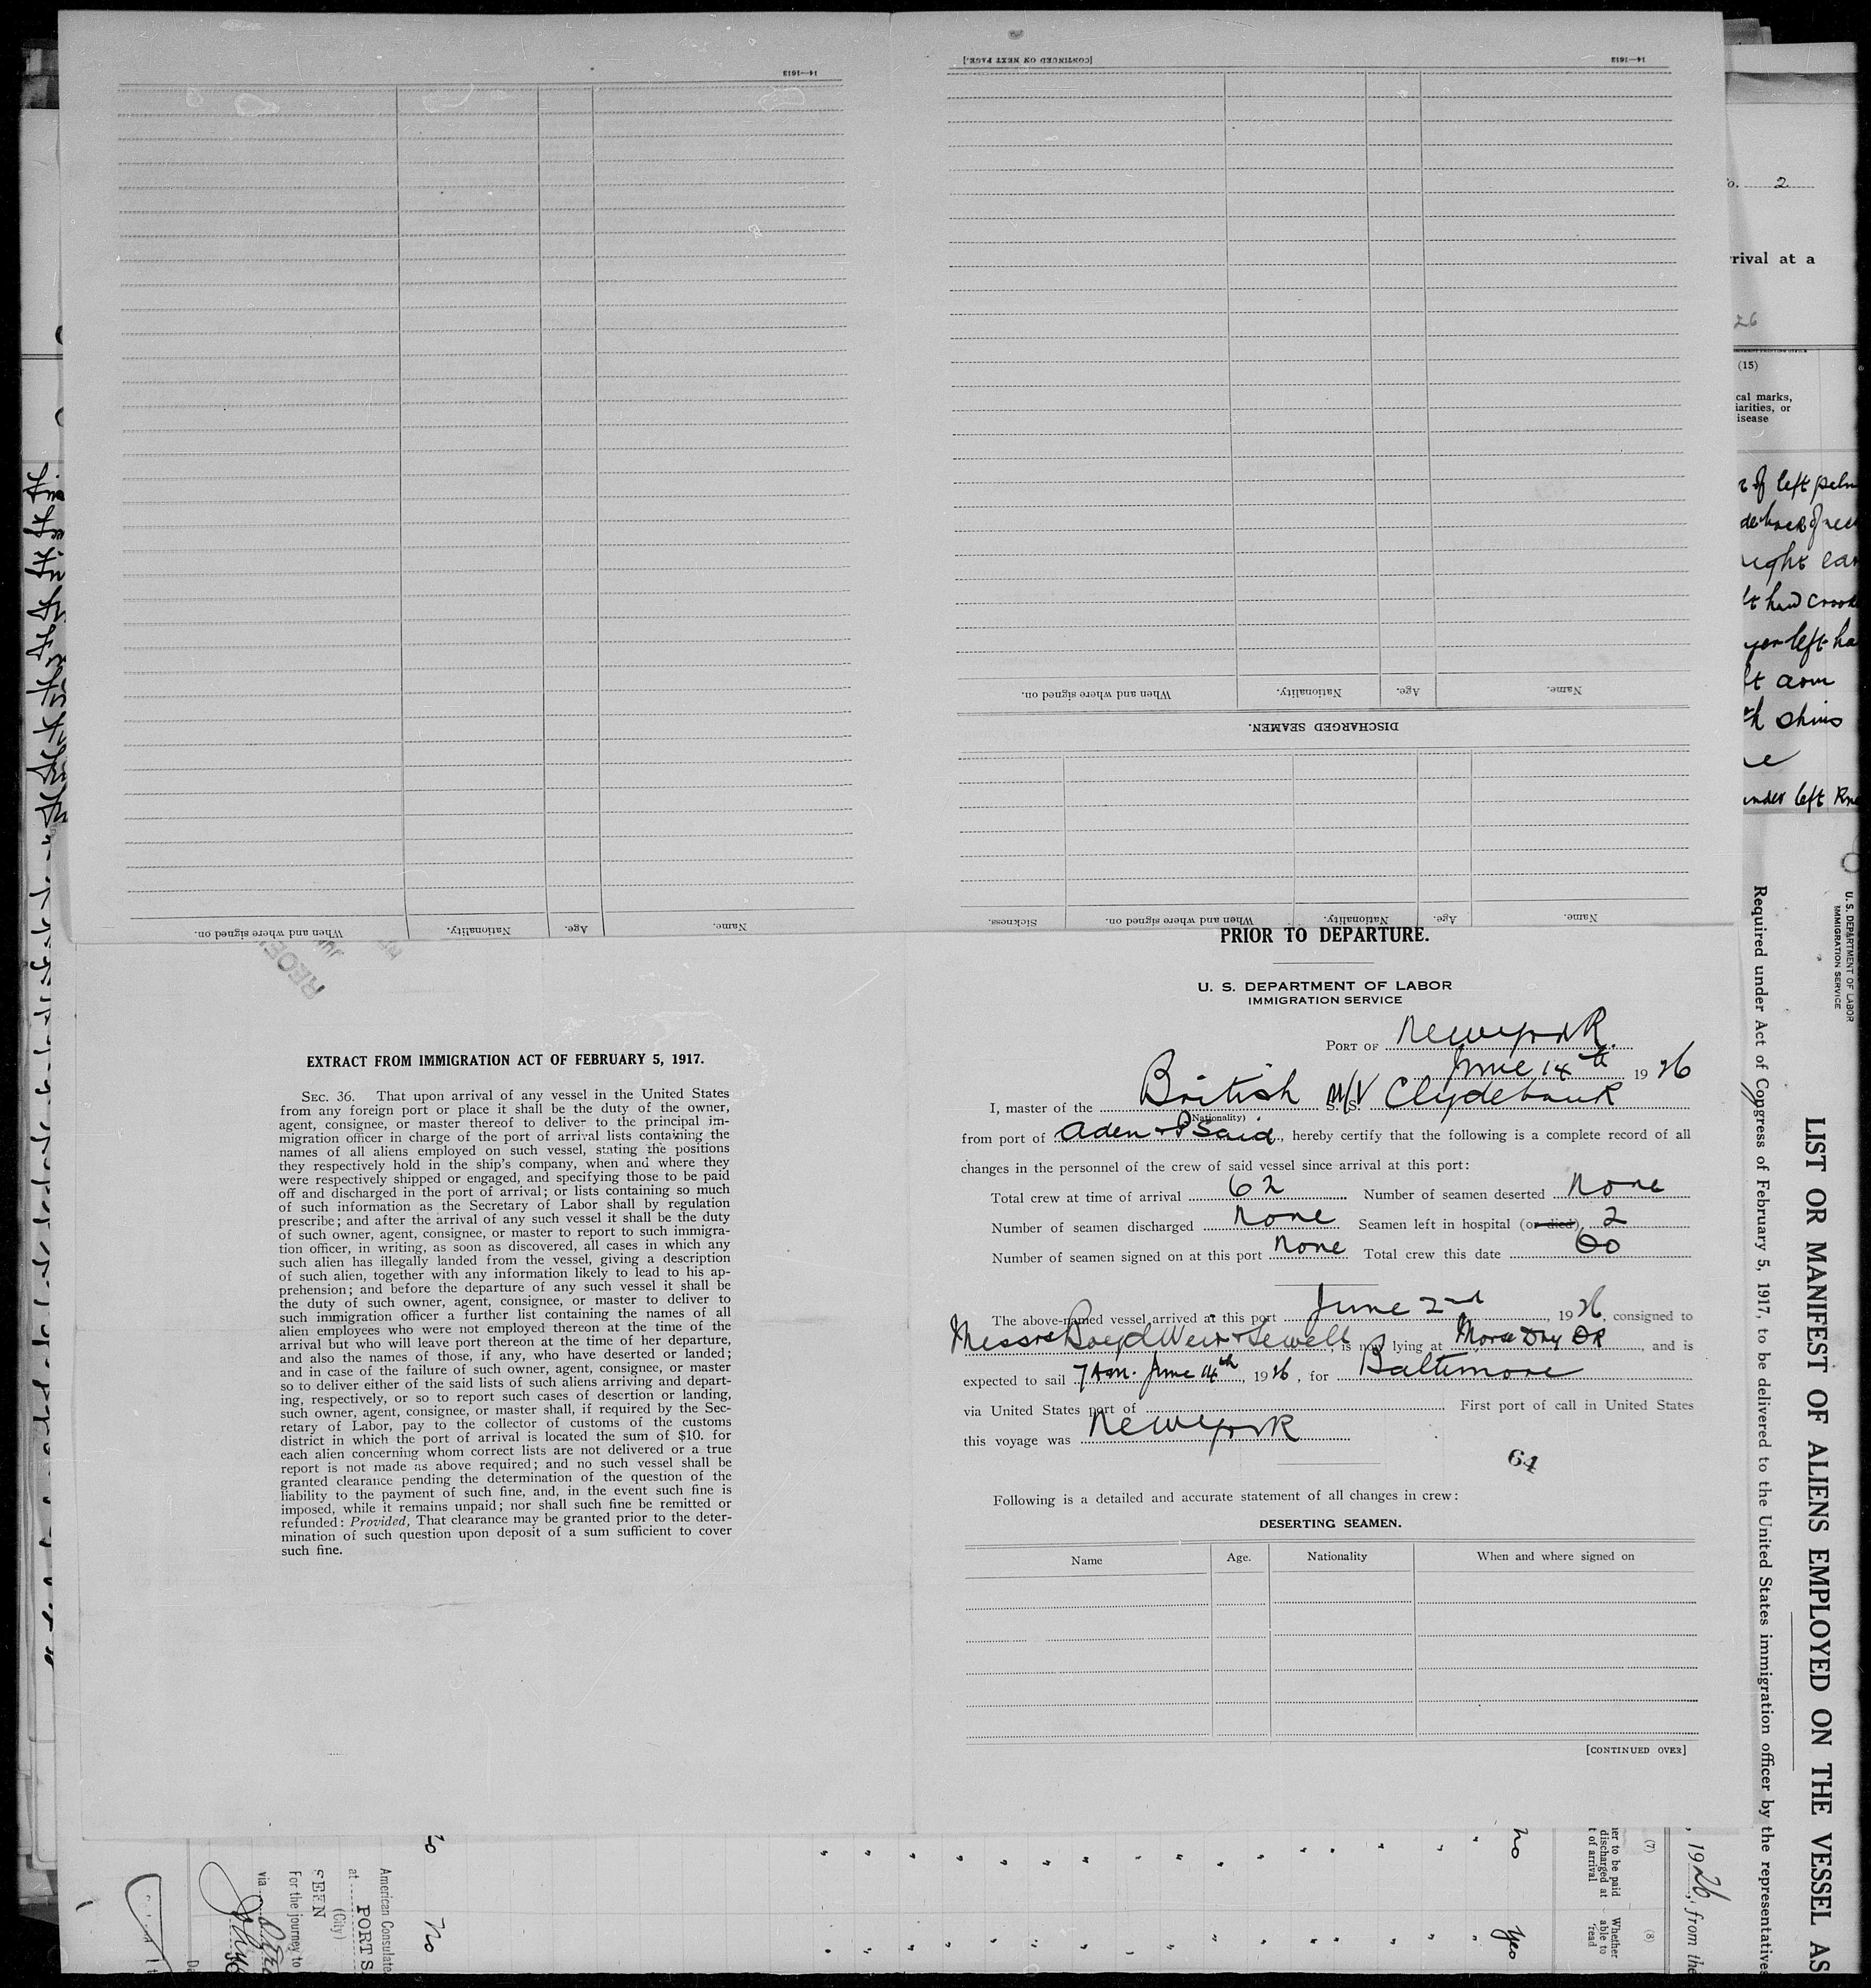 14—1613
[CONTINUED ON NEXT PAGE.]
14—1613
When and where signed on. Nationality. Age. Name.
DISCHARGED SEAMEN.
Sickness. When and where signed on. Nationality. Age. Name.
When and where signed on. Nationality. Age. Name.
PRIOR TO DEPARTURE.
U. S. DEPARTMENT OF LABOR
IMMIGRATION SERVICE
PORT OF New York.
June 14th 1926
I, master of the British M/V Clydebank
(Nationality)
from port of Aden & P Said, hereby certify that the following is a complete record of all
changes in the personnel of the crew of said vessel since arrival at this port:
Total crew at time of arrival 62 Number of seamen deserted None
Number of seamen discharged None Seamen left in hospital (or died) 2
Number of seamen signed on at this port None Total crew this date 60
The above-named vessel arrived at this port June 2nd, 1926, consigned to
Messrs Boyd Weir & Sewell, is now lying at Morse Dry Dk, and is
expected to sail 7 am. June 14th, 1926, for Baltimore
via United States port of First port of call in United States
this voyage was New York
64
Following is a detailed and accurate statement of all changes in crew:
DESERTING SEAMEN.
Name Age. Nationality When and where signed on
[CONTINUED OVER]
EXTRACT FROM IMMIGRATION ACT OF FEBRUARY 5, 1917.
SEC. 36. That upon arrival of any vessel in the United States
from any foreign port or place it shall be the duty of the owner,
agent, consignee, or master thereof to deliver to the principal im-
migration officer in charge of the port of arrival lists containing the
names of all aliens employed on such vessel, stating the positions
they respectively hold in the ship's company, when and where they
were respectively shipped or engaged, and specifying those to be paid
off and discharged in the port of arrival; or lists containing so much
of such information as the Secretary of Labor shall by regulation
prescribe; and after the arrival of any such vessel it shall be the duty
of such owner, agent, consignee, or master to report to such immigra-
tion officer, in writing, as soon as discovered, all cases in which any
such alien has illegally landed from the vessel, giving a description
of such alien, together with any information likely to lead to his ap-
prehension; and before the departure of any such vessel it shall be
the duty of such owner, agent, consignee, or master to deliver to
such immigration officer a further list containing the names of all
alien employees who were not employed thereon at the time of the
arrival but who will leave port thereon at the time of her departure,
and also the names of those, if any, who have deserted or landed;
and in case of the failure of such owner, agent, consignee, or master
so to deliver either of the said lists of such aliens arriving and depart-
ing, respectively, or so to report such cases of desertion or landing,
such owner, agent, consignee, or master shall, if required by the Sec-
retary of Labor, pay to the collector of customs of the customs
district in which the port of arrival is located the sum of $10. for
each alien concerning whom correct lists are not delivered or a true
report is not made as above required; and no such vessel shall be
granted clearance pending the determination of the question of the
liability to the payment of such fine, and, in the event such fine is
imposed, while it remains unpaid; nor shall such fine be remitted or
refunded: Provided, That clearance may be granted prior to the deter-
mination of such question upon deposit of a sum sufficient to cover
such fine.
2
rival at a
26
(15)
cal marks,
iarities, or
isease
of left palm
right ear
left ha
arm
shins
under left Kne
U. S. DEPARTMENT OF LABOR
IMMIGRATION SERVICE
LIST OR MANIFEST OF ALIENS EMPLOYED ON THE VESSEL AS
Required under Act of Congress of February 5, 1917, to be delivered to the United States immigration officer by the representatives
, 1926, from the
(7)
er to be paid
discharged at
t of arrival
(8)
Whether
able to
read
no
yes
No
American Consulate
at PORT S
(City)
SEEN
For the journey to
via